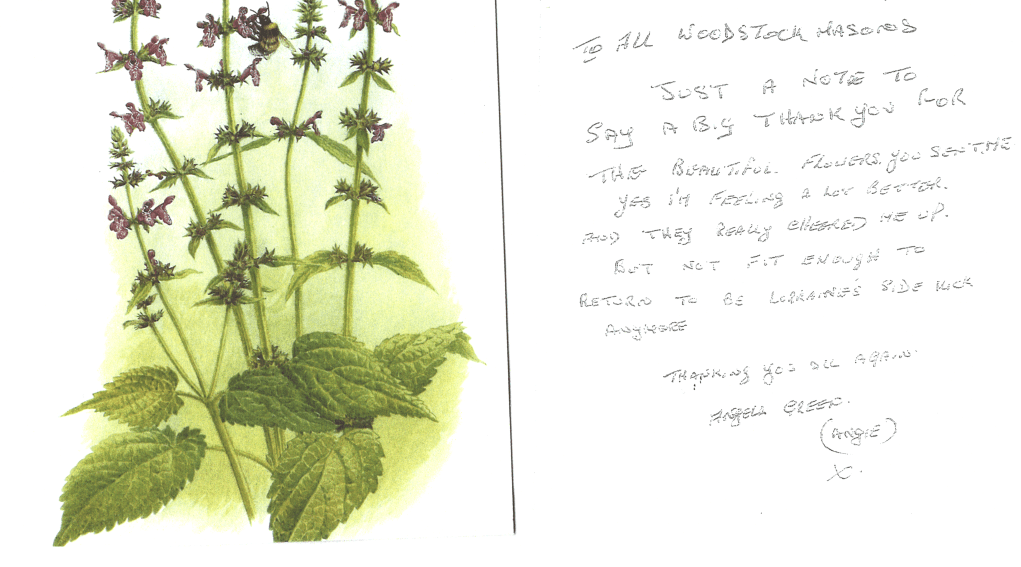 TO ALL WOODSTOCK MASONS
JUST A NOTE TO
SAY A BIG THANK YOU FOR
THE BEAUTIFUL FLOWERS, YOU SENT ME
YES I'M FEELING A LOT BETTER.
AND THEY REALLY CHEERED ME UP.
BUT NOT FIT ENOUGH TO
RETURN TO BE LORRAINE'S SIDE KICK
ANYMORE
THANKING YOU ALL AGAIN.
ANGELA GREEN.
(ANGIE)
X.